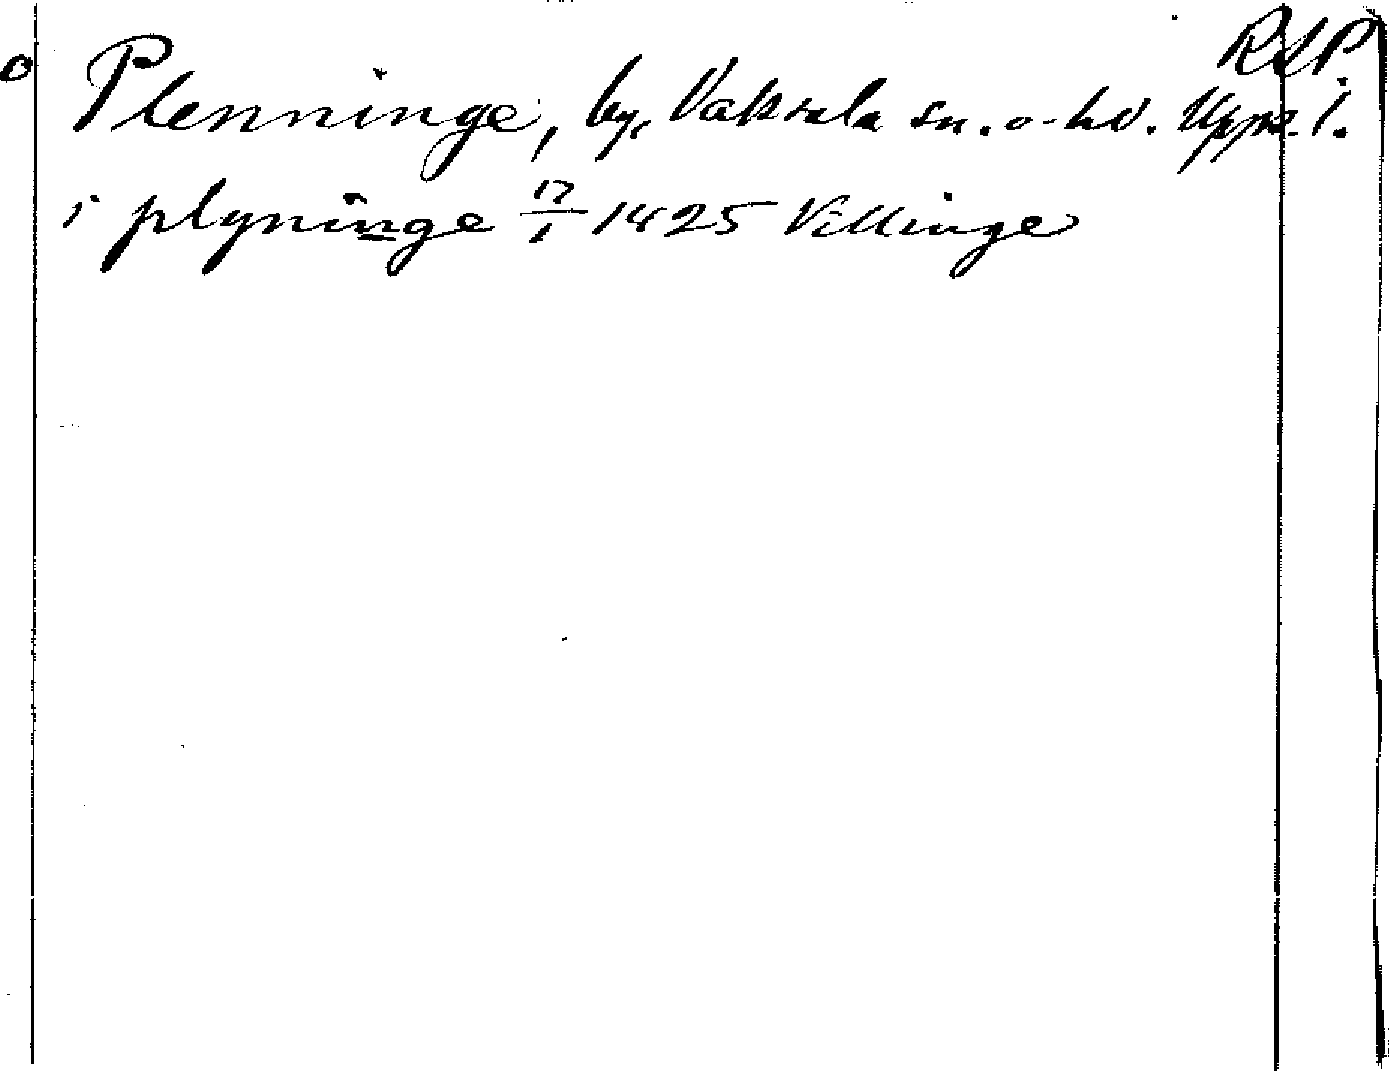 RAP
o Plenninge, by, Vaksala sn. o. hd. Upps. l.
i plyninge 17/1 1425 Villinge